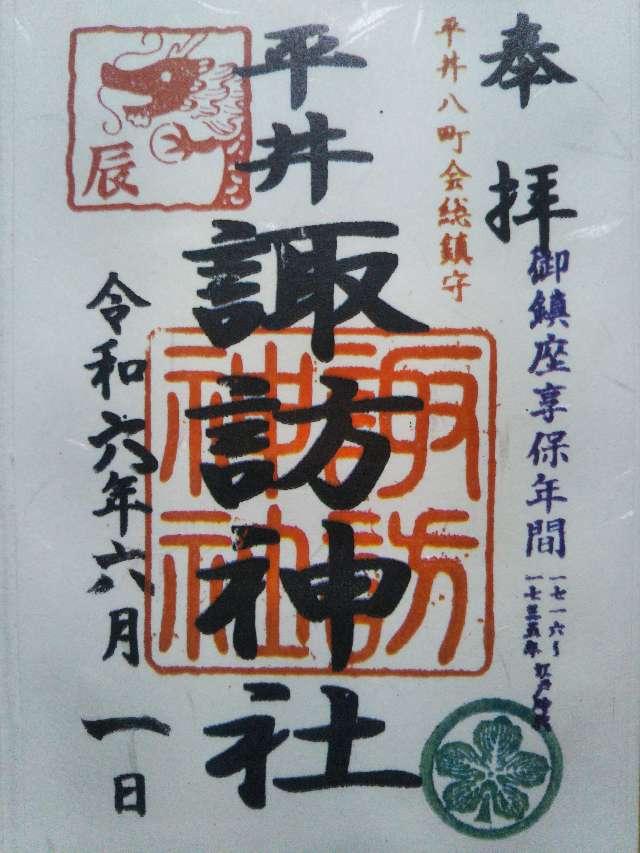 奉拝
御鎮座享保年間
一七一六〜
一七三五年 江戸時代
平井八町会総鎮守
平井
諏訪神社
諏訪
神社
辰
令和六年六月一日